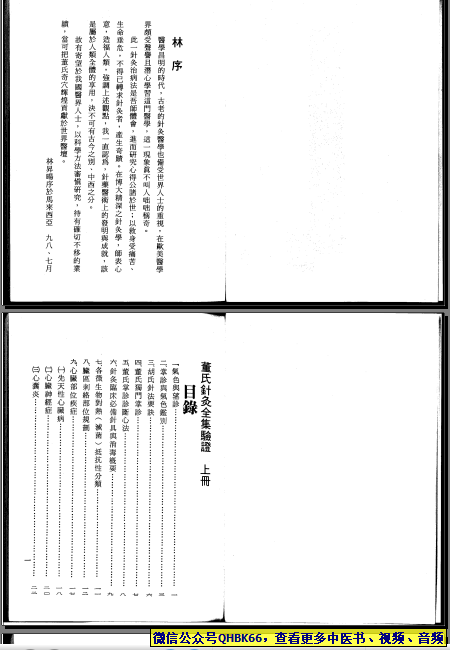 林序
醫學昌明的時代，古老的針灸醫學也備受世界人士的重視，在歐美醫學
界頗受聲譽且潛心學習這門醫學，這一現象眞不叫人咄咄稱奇。
此一針灸治病法是吾師體會，進而研究心得公諸於世；以救身受痛苦、
生命垂危，不得已轉求針灸者，產生奇蹟。在博大精深之針灸學，師表心
意，造福人類，強調上述觀點，我一直認爲，針藥醫術上的發明與成就，該
是屬於人類全體的享用，決不可有古今之別，中西之分。
故有寄望於我國醫界人士，以科學方法審愼研究，待有確切不移的業
績，當可把董氏奇穴輝煌貢獻於世界醫壇。
林昇暘序於馬來西亞 九八、七月
董氏針灸全集驗證 上冊
目錄
一氣色與望診
二、掌診與氣色鑑別
三、胡氏針法要訣
四、董氏獨門掌診
五、董氏掌診診斷心法
六、針灸臨床必備針具與消毒概要
七、各微生物對熱（滅菌）抵抗性分類
八、臟區刺絡部位規劃
九、心臟部位疾症
㈠先天性心臟病
㈡心臟神經症
㈢心囊炎
一
微信公众号QHBK66，查看更多中医书、视频、音频